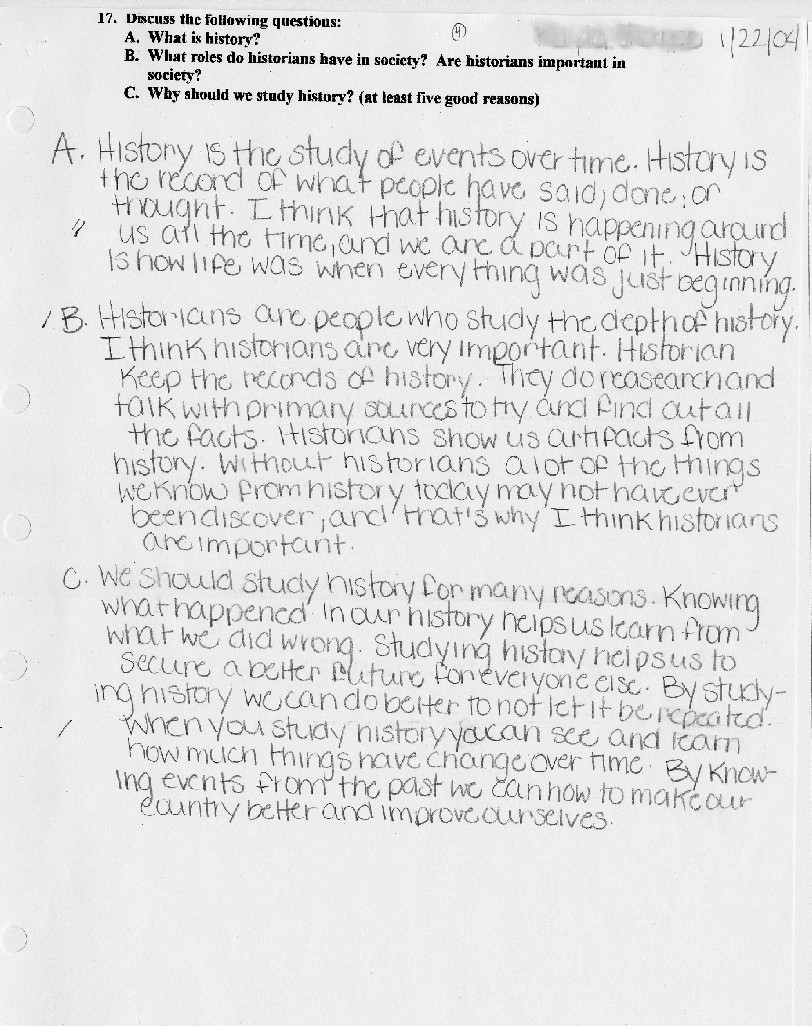 17. Discuss the following questions:
A. What is history?
(4)
1/22/04
B. What roles do historians have in society? Are historians important in
society?
C. Why should we study history? (at least five good reasons)
A. History is the study of events over time. History is
the record of what people have said, done, or
thought. I think that history is happening around
us all the time, and we are a part of it. History
is how life was when everything was just beginning.
B. Historians are people who study the depth of history.
I think historians are very important. Historian
keep the records of history. They do reasearch and
talk with primary sources to try and find out all
the facts. Historians show us artifacts from
history. Without historians a lot of the things
we know from history today may not have ever
been discover, and that's why I think historians
are important.
C. We should study history for many reasons. Knowing
what happened in our history helps us learn from
what we did wrong. Studying history helps us to
secure a better future for everyone else. By study-
ing history we can do better to not let it be repeated.
When you study history you can see and learn
how much things have change over time. By know-
ing events from the past we can how to make our
country better and improve ourselves.